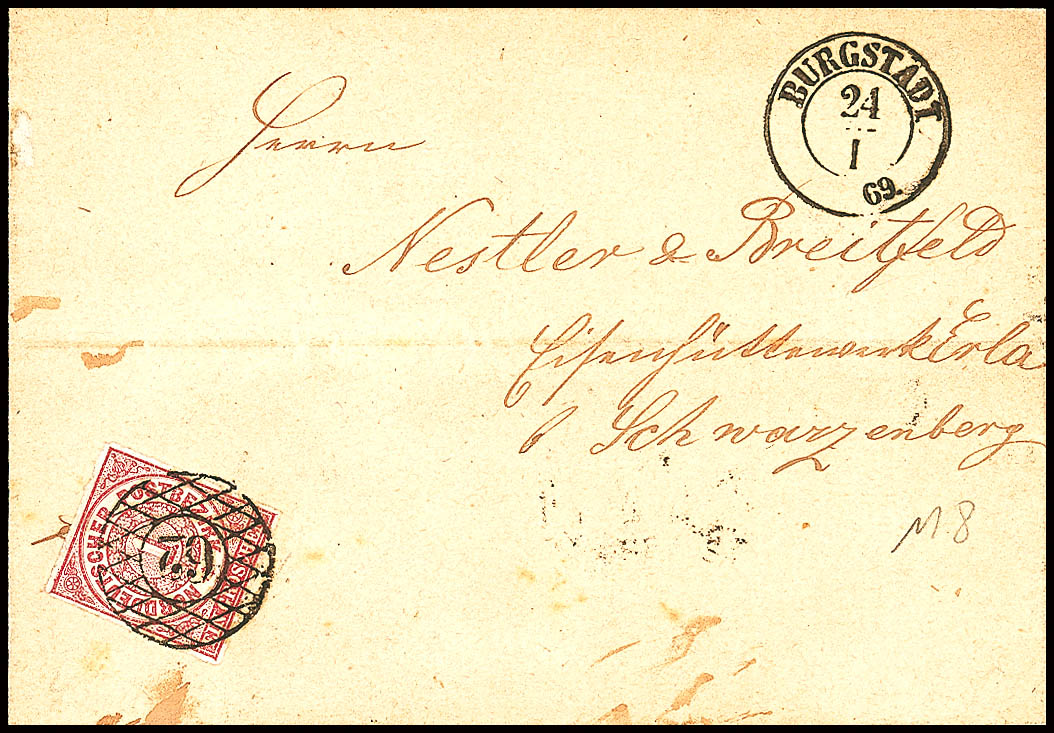 BURGSTÄDT.
24
I
69.
Herrn
Nestler & Breitfeld
Eisenhüttenwerk Erla
b Schwarzenberg
M8
NORDDEUTSCHER POSTBEZIRK
1
79